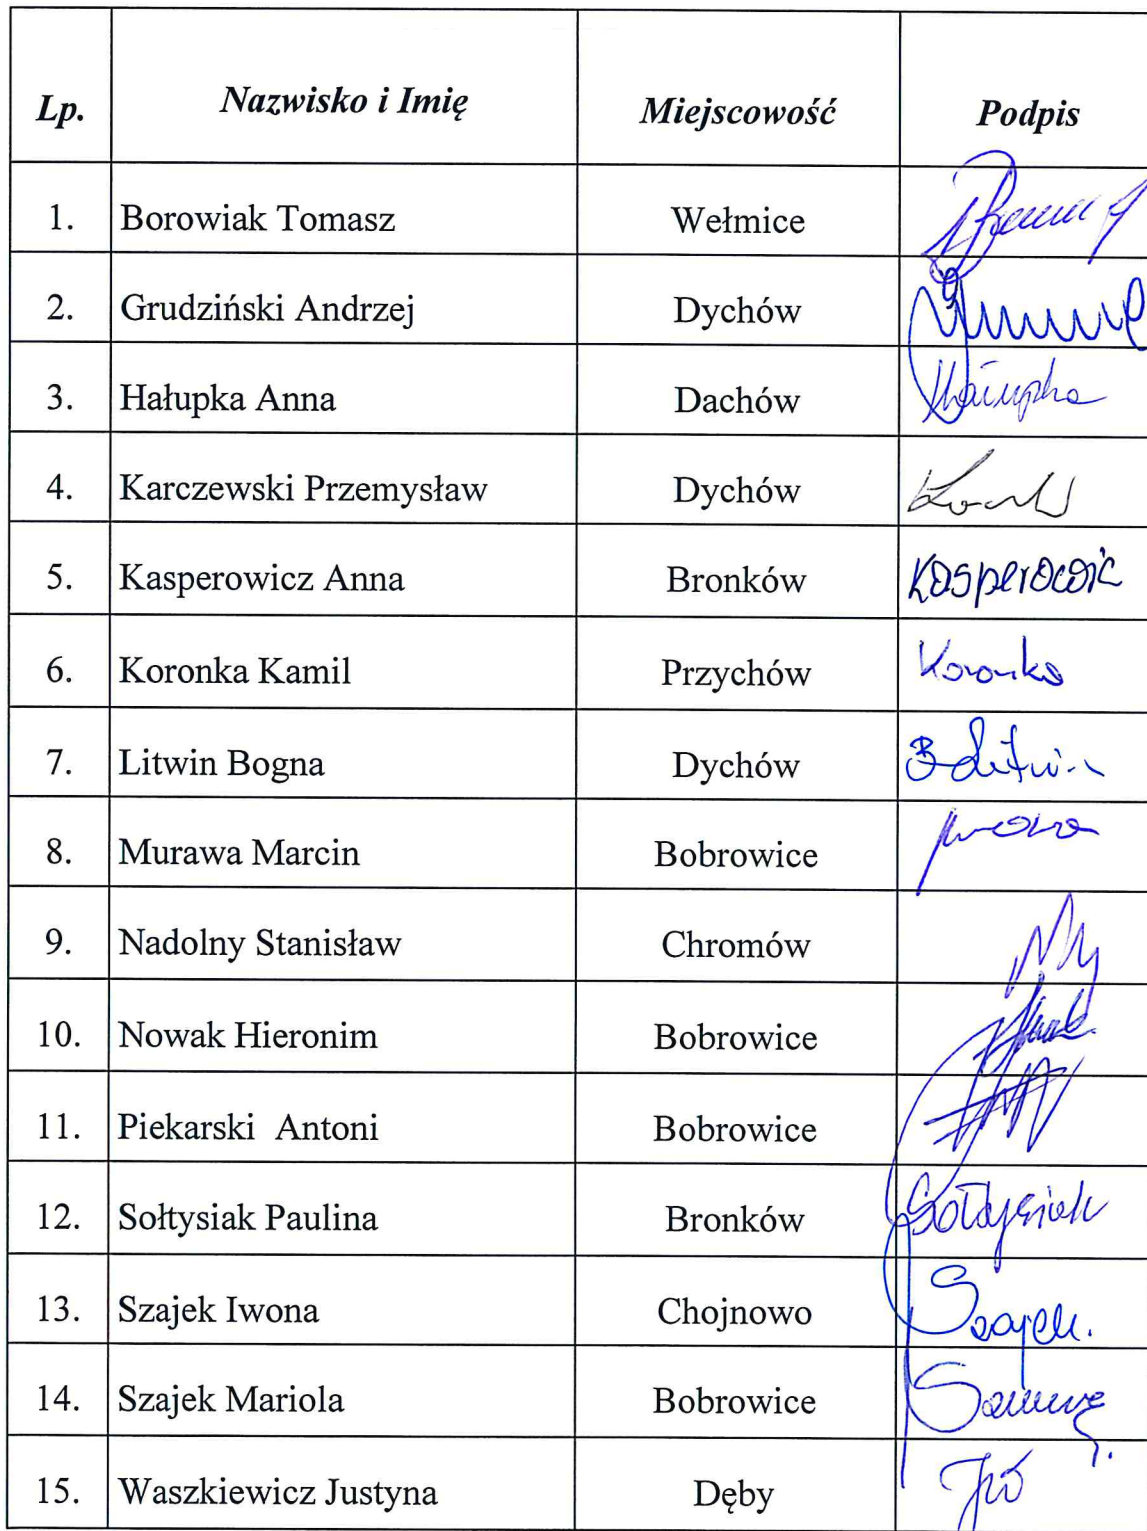 Lp. Nazwisko i Imię Miejscowość Podpis
1. Borowiak Tomasz Wełmice
2. Grudziński Andrzej Dychów
3. Hałupka Anna Dachów Hałupka
4. Karczewski Przemysław Dychów
5. Kasperowicz Anna Bronków Kasperowicz
6. Koronka Kamil Przychów Koronka
7. Litwin Bogna Dychów B Litwin
8. Murawa Marcin Bobrowice
9. Nadolny Stanisław Chromów
10. Nowak Hieronim Bobrowice
11. Piekarski Antoni Bobrowice
12. Sołtysiak Paulina Bronków Sołtysiak
13. Szajek Iwona Chojnowo Szajek.
14. Szajek Mariola Bobrowice
15. Waszkiewicz Justyna Dęby